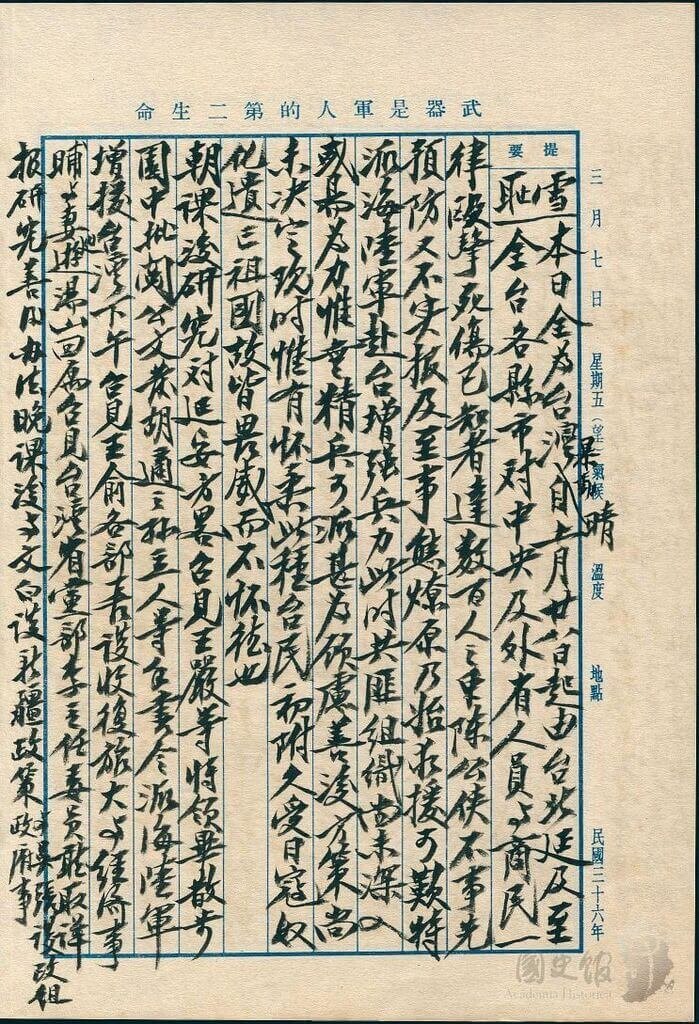 武器是軍人的第二生命
三月七日 星期五(望) 氣候 晴 溫度 地點 民國三十六年
提要
雪恥 本日全為台灣暴動自上月廿八日起由台北延及至
全台各縣市對中央及外省人員與商民一
律毆擊死傷已知者達數百人之眾陳公俠不事先
預防又不实报及至事態燎原乃始求援可歎特
派海陸軍赴台增强兵力此時共匪組織尚未深入
或易為力惟無精兵可派甚为顾慮善後方策尚
未决定现时惟有怀柔此種台民初附久受日寇奴
化遺亡祖國故皆畏威而不怀德也
朝課後研究对延安方畧召見王嚴等將領畢散步
園中批阅公文胡適之孫立人等书令派海陸軍
增援台湾下午召見王俞各部長谈收復旅大與經济事
晡與妻遊湯山回寓召見台湾省黨部李主任委員聽取詳
报研究善后办法晚課後與文白谈新疆政策與吳張谈改組政府事